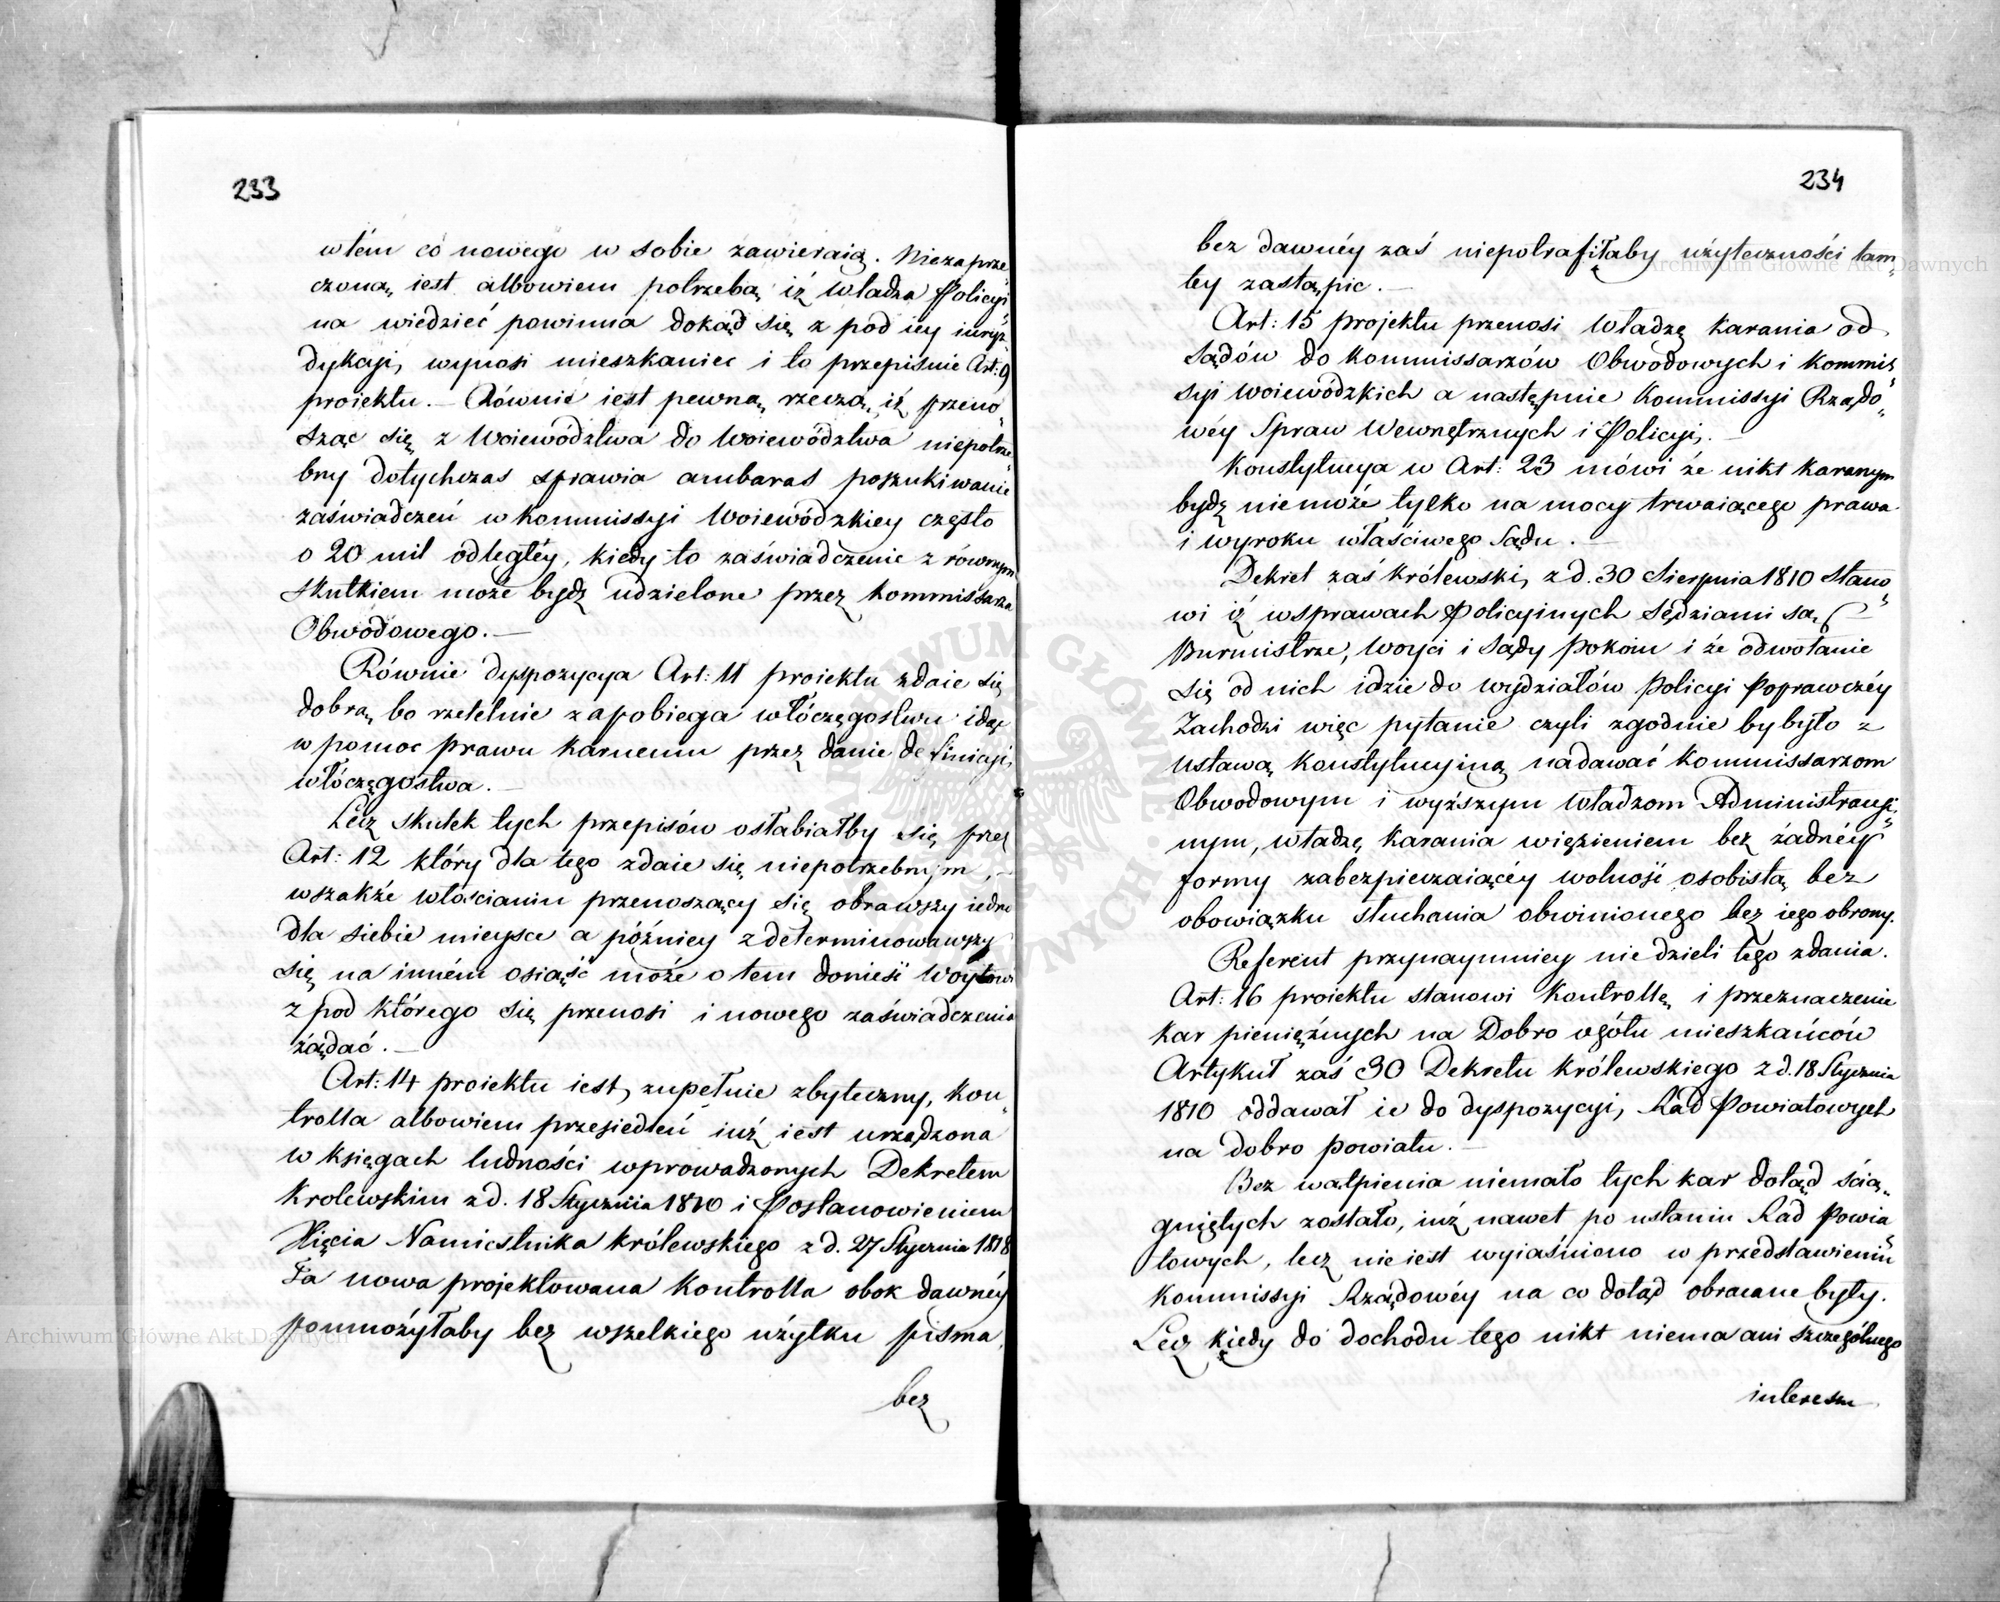 233
w tém co nowego w sobie zawieraią. Nieza prze„
czoną iest albowiem potrzebą iż Władza Policyi„
na wiedzieć powinna dokąd się z pod iey iuryz„
dykcyi, wynosi mieszkaniec i to przepisuie Art: 9
proiektu. — Równie iest pewną, rzeczą, iż przeno„
sząc się z Województwa do Województwa niepotrze„
bny dotychczas sprawia ambaras poszukiwanie
zaświadczeń w Kommissyi Woiewódzkiey często
o 20 mil odległéy, kiedy to zaświadczenie z równym
skutkiem może bydź udzielone przez Kommissarza
Obwodowego. —
Równie dyspozycya Art: 11 proiektu zdaie się
dobrą, bo rzetelnie zapobiega włóczęgostwu idąc
w pomoc prawu karnemu przez danie definicyi,
włóczęgostwa. —
Lecz skutek tych przepisów osłabiałby się przez
Art: 12 który dla tego zdaie się niepotrzebnym, —
wszakże włościanin przenoszący się obrawszy iedno
dla siebie mieysce a późniey zdeterminowawszy
się na inném osiąść może o tem donieść Woytowi
z pod którego się przenosi i nowego zaświadczenia
żądać. —
Art: 14 proiektu iest, zupełnie zbyteczny, kon„
trolla albowiem przesiedleń iuż iest urządzona
w księgach ludności wprowadzonych Dekretem
Krolewskim z d. 18 Stycznia 1810 i Postanowieniem
Xięcia Namiestnika Królewskiego z d. 27 Stycznia 1818
Ta nowa projektowana Kontrolla obok dawnéy
pomnożyłaby bez wszelkiego użytku pisma,
bez
234
bez dawnéy zaś niepotrafiłaby użyteczności tam„
tey zastąpic. —
Art: 15 projektu przenosi Władzę karania od
Sądów do Kommissarzów Obwodowych i Kommis„
syi Woiewódzkich a następnie Kommissyi Rządo„
wéy Spraw Wewnętrznych i Policyi. —
Konstytucya w Art: 23 mówi że nikt karanym
bydź niemoże tylko na mocy trwaiącego prawa
i wyroku właściwego Sądu. —
Dekret zaś Królewski, z d. 30 Sierpnia 1810 Stano„
wi iż w sprawach Policyinych Sędziami są, —
Burmistrze, Woyci i Sądy Pokoiu i że odwołanie
się od nich idzie do wydziałów Policyi Poprawczéy
Zachodzi więc pytanie czyli zgodnie by było z
Ustawą Konstytucyiną nadawać Kommissarzom
Obwodowym i wyższym Władzom Administracyi„
nym, władzę karania więzieniem bez żadnéy
formy zabezpieczaiącéy wolność osobistą bez
obowiązku słuchania obwinionego bez iego obrony.
Referent przynaymniey nie dzieli tego zdania.
Art: 16 proiektu stanowi Kontrollę i przeznaczenie
kar pieniężnych na Dobro ogółu mieszkańców
Artykuł zaś 30 Dekretu Królewskiego z d. 18 Stycznia
1810 oddawał ie do dyspozycyi, Rad Powiatowych
na dobro powiatu. —
Bez wątpienia niemało tych kar dotąd ścią„
gniętych zostało, iuż nawet po ustaniu Rad Powia„
towych, lecz nie iest wyiaśniono w przedstawieniu
Kommissyi Rządowéy na co dotąd obracane były.
Lecz kiedy do dochodu tego nikt niema ani szczególnego
interessu
Archiwum Główne Akt Dawnych
Archiwum Główne Akt Dawnych